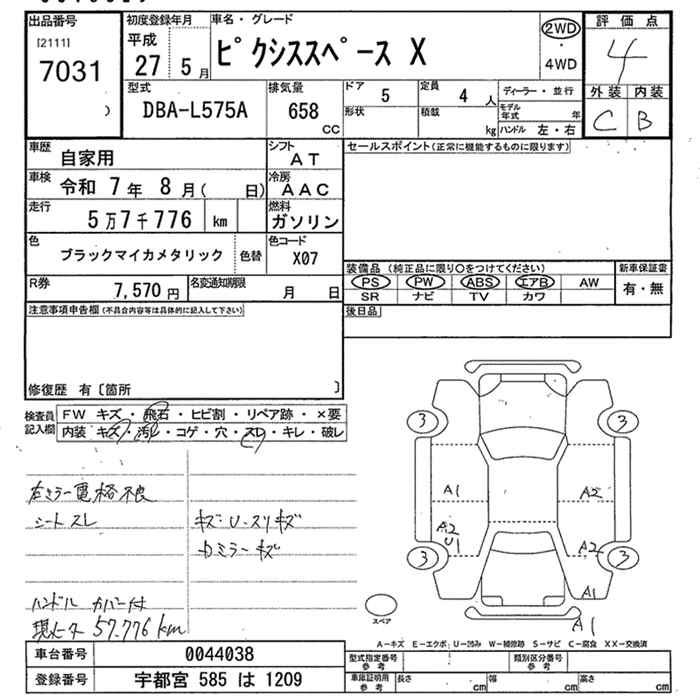 出品番号
[2111]
7031
)
初度登録年月
平成
27 5月
車名・グレード
ピクシススペース X
2WD
・
4WD
評価点
4
外装 内装
C B
型式
DBA-L575A
排気量
658
CC
ドア 5
定員 4 人
形状
積載 kg
ディーラー・並行
モデル年式 年
ハンドル 左・右
車歴 自家用
シフト AT
セールスポイント(正常に機能するものに限ります)
車検 令和 7年 8月( 日)
冷房 AAC
走行 5万7千776 km
燃料 ガソリン
色 ブラックマイカメタリック 色替
色コード X07
装備品(純正品に限り○をつけてください)
新車保証書
PS PW ABS エアB AW
有・無
SR ナビ TV カワ
R券 7,570円
名変通知期限 月 日
後日品
注意事項申告欄(不具合内容等は具体的に記入して下さい)
修復歴 有〔箇所 〕
検査員記入欄
FW キズ・飛石・ヒビ割・リペア跡・×要
内装 キズ・汚レ・コゲ・穴・スレ・キレ・破レ
右ミラー電格不良
シートスレ
キズ・U・スリキズ
カミラーキズ
ハンドルカバー付
現メータ 57.776km
3 3
A1 A2
A2
U1
A2
3 3
A1
A1
スペア
A-キズ E-エクボ U-凹み W-補修跡 S-サビ C-腐食 XX-交換済
車台番号 0044038
型式指定番号
参考
類別区分番号
参考
登録番号 宇都宮 585 は 1209
車庫証明用
参考
長さ cm 幅 cm 高さ cm